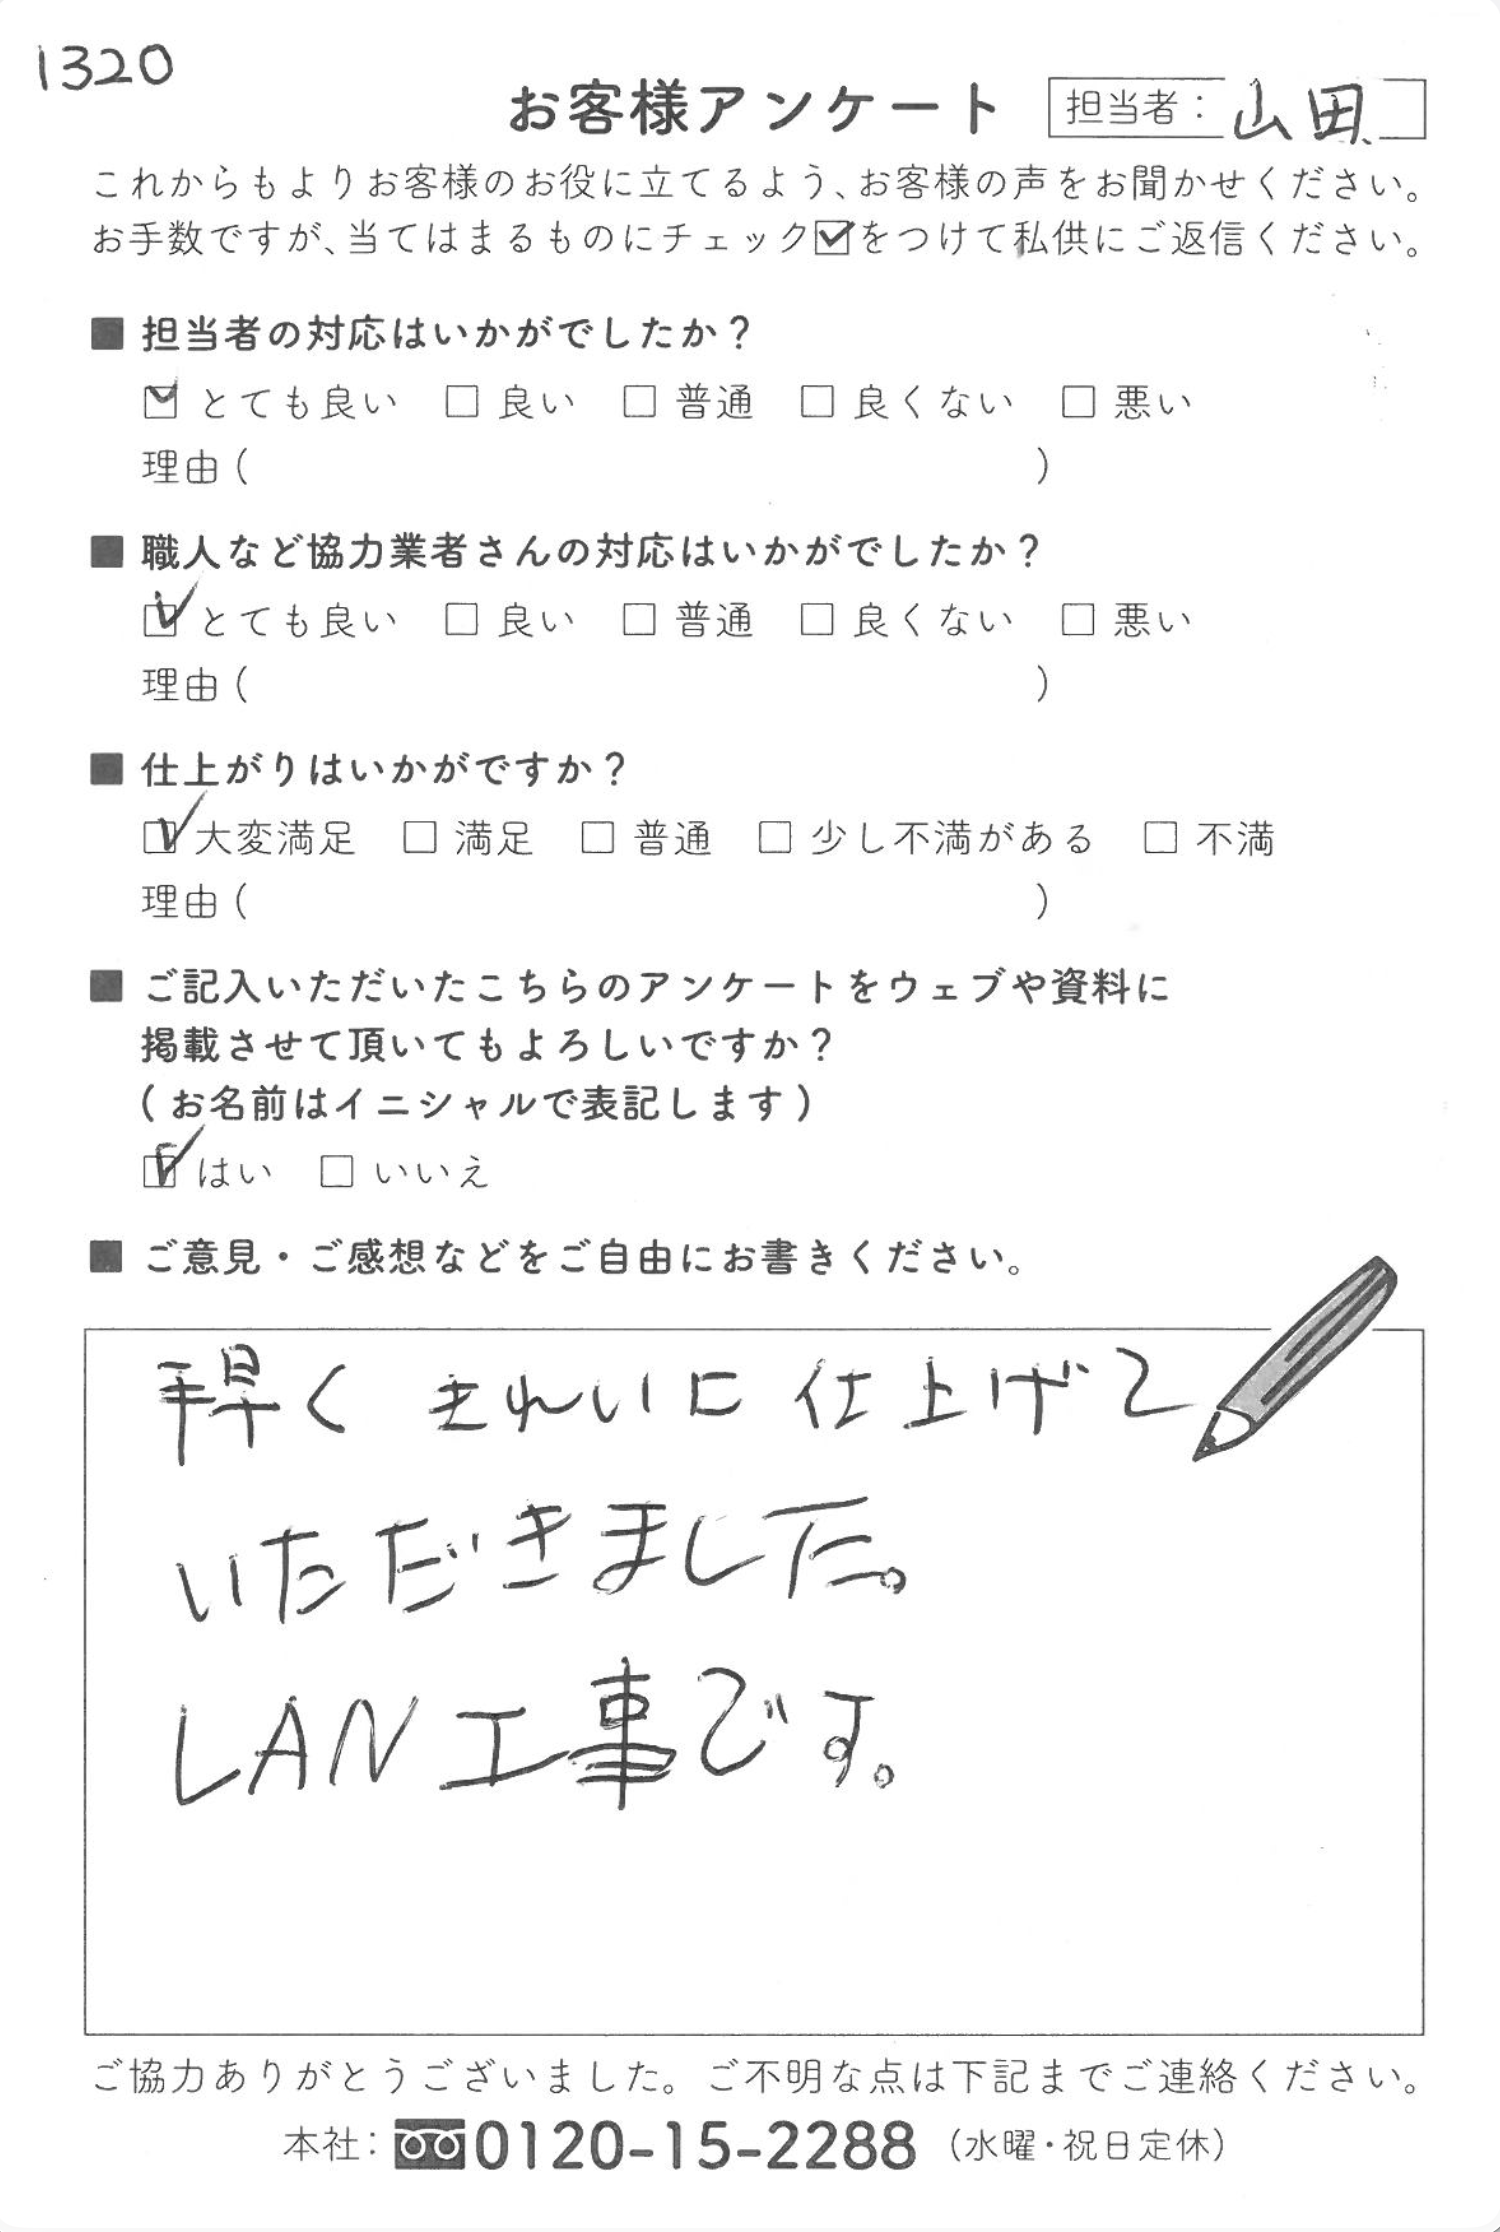 1320
お客様アンケート 担当者：山田
これからもよりお客様のお役に立てるよう、お客様の声をお聞かせください。
お手数ですが、当てはまるものにチェック☑をつけて私供にご返信ください。
■ 担当者の対応はいかがでしたか？
☑ とても良い □ 良い □ 普通 □ 良くない □ 悪い
理由（ ）
■ 職人など協力業者さんの対応はいかがでしたか？
☑ とても良い □ 良い □ 普通 □ 良くない □ 悪い
理由（ ）
■ 仕上がりはいかがですか？
☑ 大変満足 □ 満足 □ 普通 □ 少し不満がある □ 不満
理由（ ）
■ ご記入いただいたこちらのアンケートをウェブや資料に
掲載させて頂いてもよろしいですか？
（お名前はイニシャルで表記します）
☑ はい □ いいえ
■ ご意見・ご感想などをご自由にお書きください。
手早く きれいに 仕上げて
いただきました。
LAN工事です。
ご協力ありがとうございました。ご不明な点は下記までご連絡ください。
本社：0120-15-2288（水曜・祝日定休）